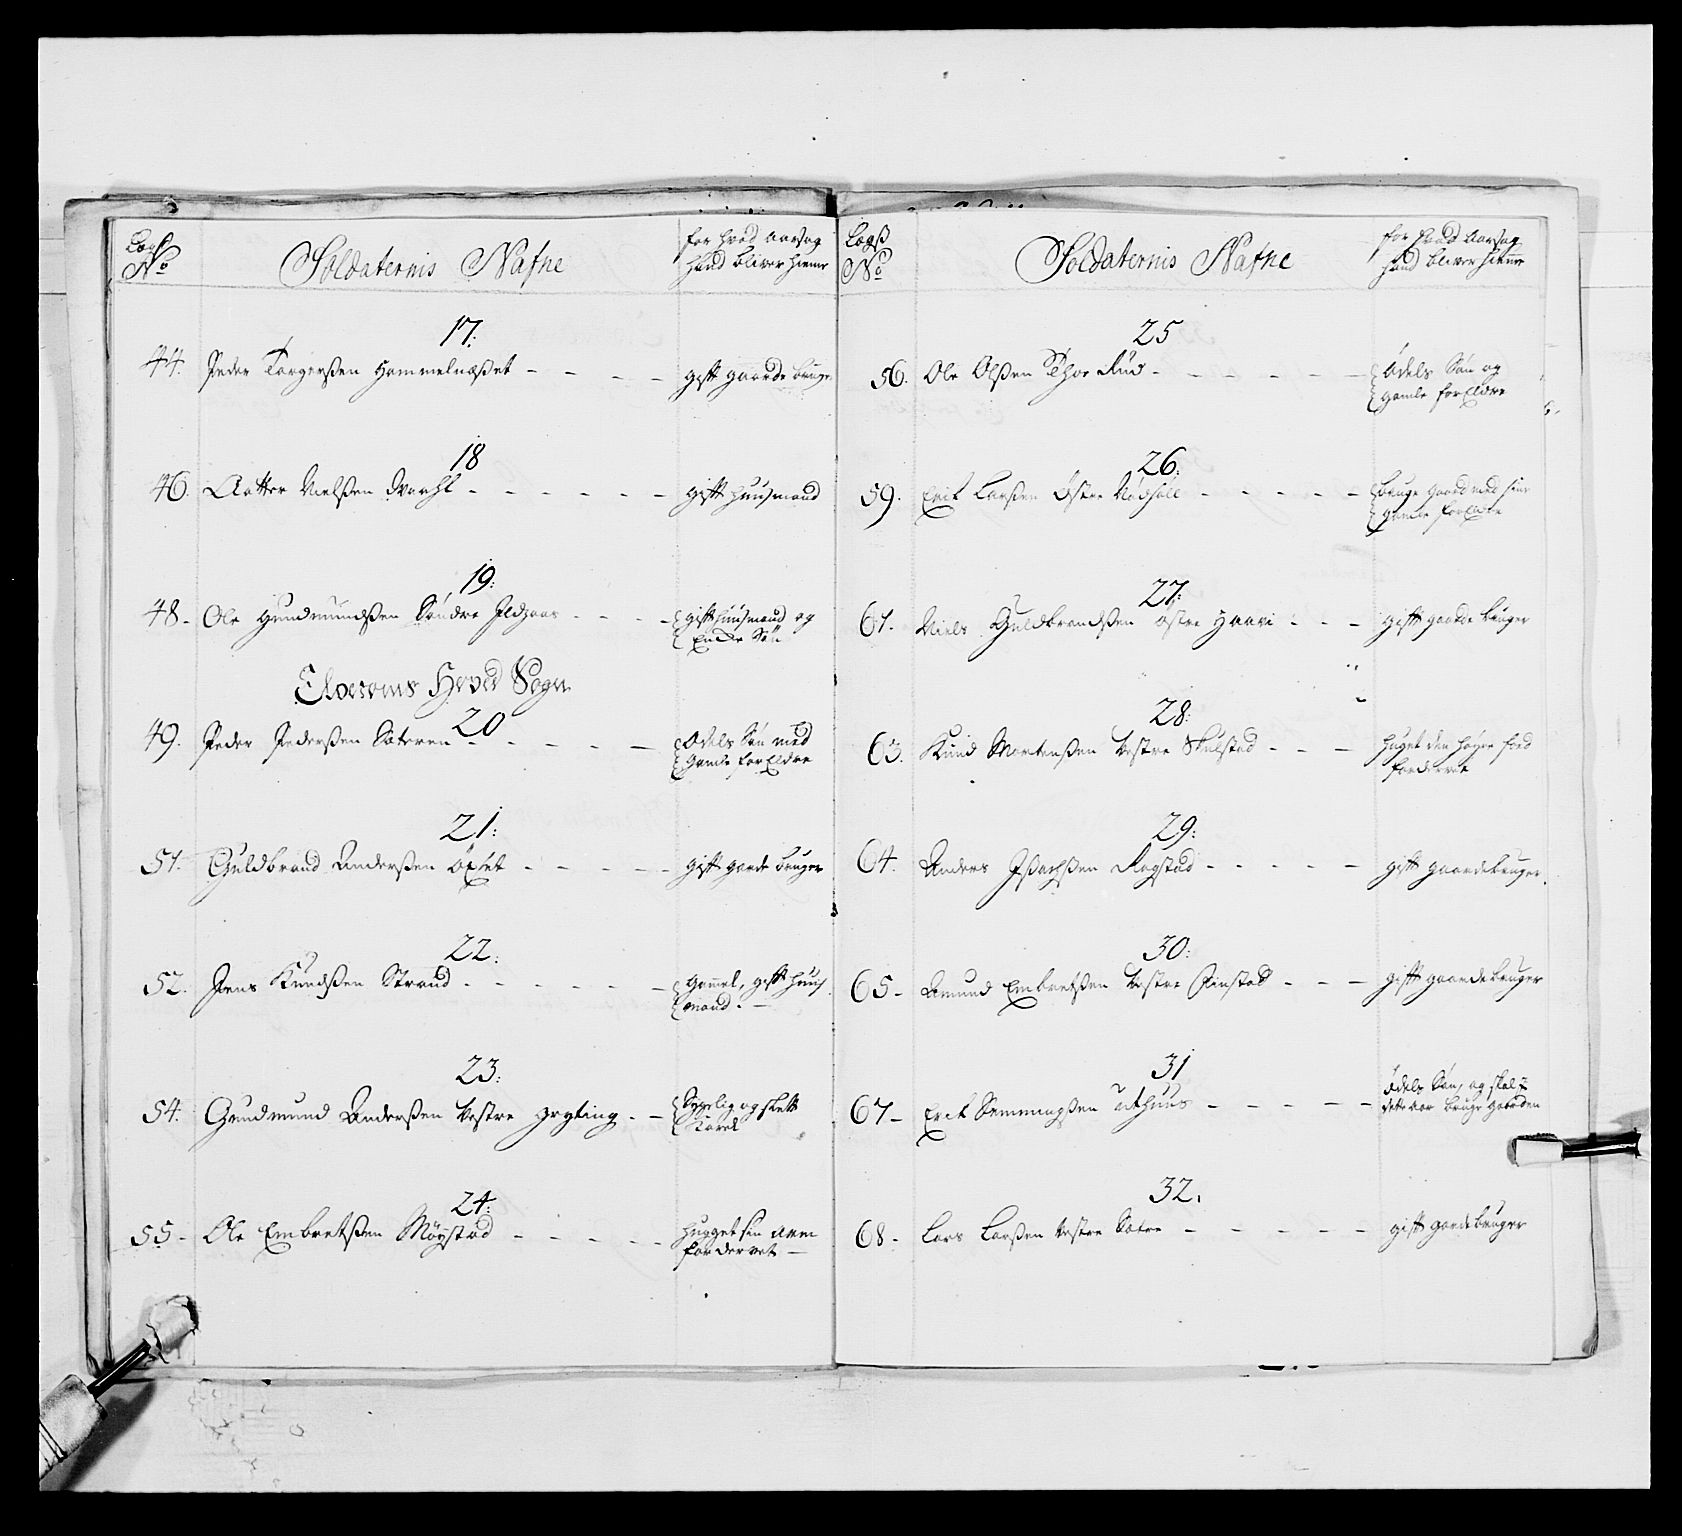 Legs No
Soldaternis Nafne
for hvad aarsag
hand bliver hieme
17:
44. Peder Torgersen Hammelnæset - - - - gift gaarde bruger
18
46. Aatter Nielsen Svarhl - - - - - - gift huusmand
19:
48- Ole Gundmundsen Søndre Ildgaas - - - - gift huusmand og
En Eke Søn
Elveroms Hoved Sogn
20
49. Peder Pedersen Sætren - - - - - - Odels Søn med
Gamle forEldre
21:
51. Guldbrand Andersen Øxset - - - - - gift garde bruger
22:
52. Jens Knudsen Strand - - - - - - gamel, gift huus
mand. -
23:
54. Gundmund Andersen Vestre Grgting - - Sygelig og slett
Karel
24:
55- Ole Embretsen Møystad - - - - - hugget sin arm
fordervet -
Logs No
Soldaternis Nafne
for hvad Aarsag
hand bliver hieme
25
56. Ole Olsen Thor Rud - - - - - - Odels Søn og
gamle forEldre
26:
59. Erik Larsen Østre - - - - - bruge gaard med sine
gamle forEldre
27:
61. Niels Guldbrandsen østre Haavi - - - gift gaarde bruger
28:
63. Knud Mortensen Vestre Skulstad - - - huget den høyre fod
fordervet
29:
64. Anders Isachsen Rogstad - - - - - gift gaardebruger
30:
65- Amund Embretsen Vestre Finstad - - - gift gaardebruger
31
67- Erik Semmingsen Aathuus - - - - - Odels Søn, og skal i
dette aar bruge gaarden
32.
68- Lars Larsen Vestre Sætre - - - - - gift gardebruger